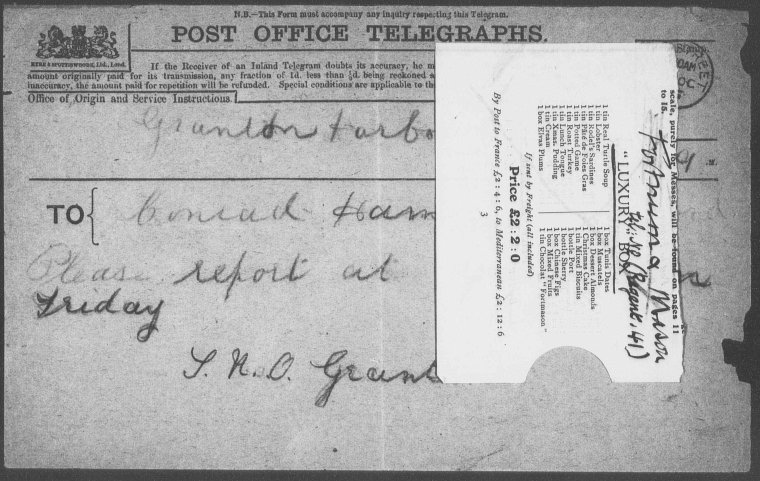 N.B.—This Form must accompany any inquiry respecting this Telegram.
POST OFFICE TELEGRAPHS.
EYRE & SPOTTISWOODE, Ltd., Lond.
If the Receiver of an Inland Telegram doubts its accuracy, he m
amount originally paid for its transmission, any fraction of 1d. less than ½d. being reckoned a
inaccuracy, the amount paid for repetition will be refunded. Special conditions are applicable to th
Office of Origin and Service Instructions.
Granton Harbo
TO
Conrad
Please report at
Friday
S. N. O. Grant
scale, purely for Messes, will be found on pages 11
to 15.
Fortnum & Mason
"LUXURY" BOX
(Regent. 41)
1 tin Real Turtle Soup
1 tin Lobster
1 tin Rödel's Sardines
1 tin Pâté de Foies Gras
1 tin Potted Game
1 tin Roast Turkey
1 tin Lunch Tongue
1 tin Xmas. Pudding
1 tin Cream
1 box Elvas Plums
1 box Tunis Dates
1 box Muscatels
1 box Dessert Almonds
1 Christmas Cake
1 tin Mixed Biscuits
1 bottle Port
1 bottle Sherry
1 box Chinese Figs
1 box Mixed Fruits
1 tin Chocolat "Fortmason"
Price £2 : 2 : 0
If sent by Freight (all included)
By Post to France £2 : 4 : 6, to Mediterranean £2 : 12 : 6
3